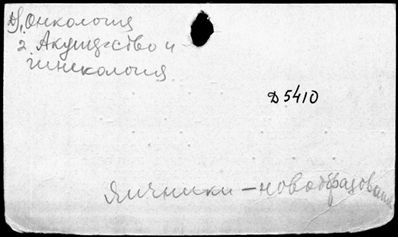 1. Онкология
2. Акушерство и
гинекология
Д5410
Яичники – новообразования